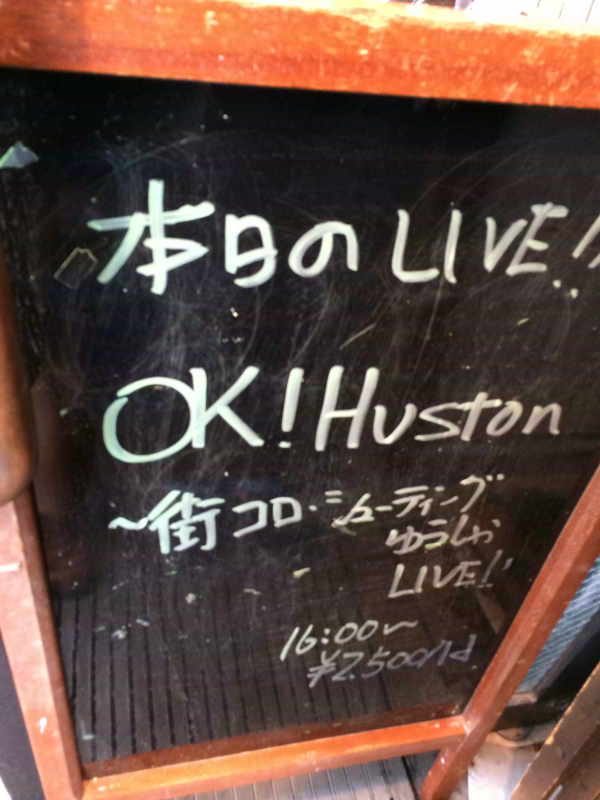 本日のLIVE!!
OK!Huston
~街コロ・シューティング
ゆうしゃ
LIVE!!
16:00~
¥2.500/1d